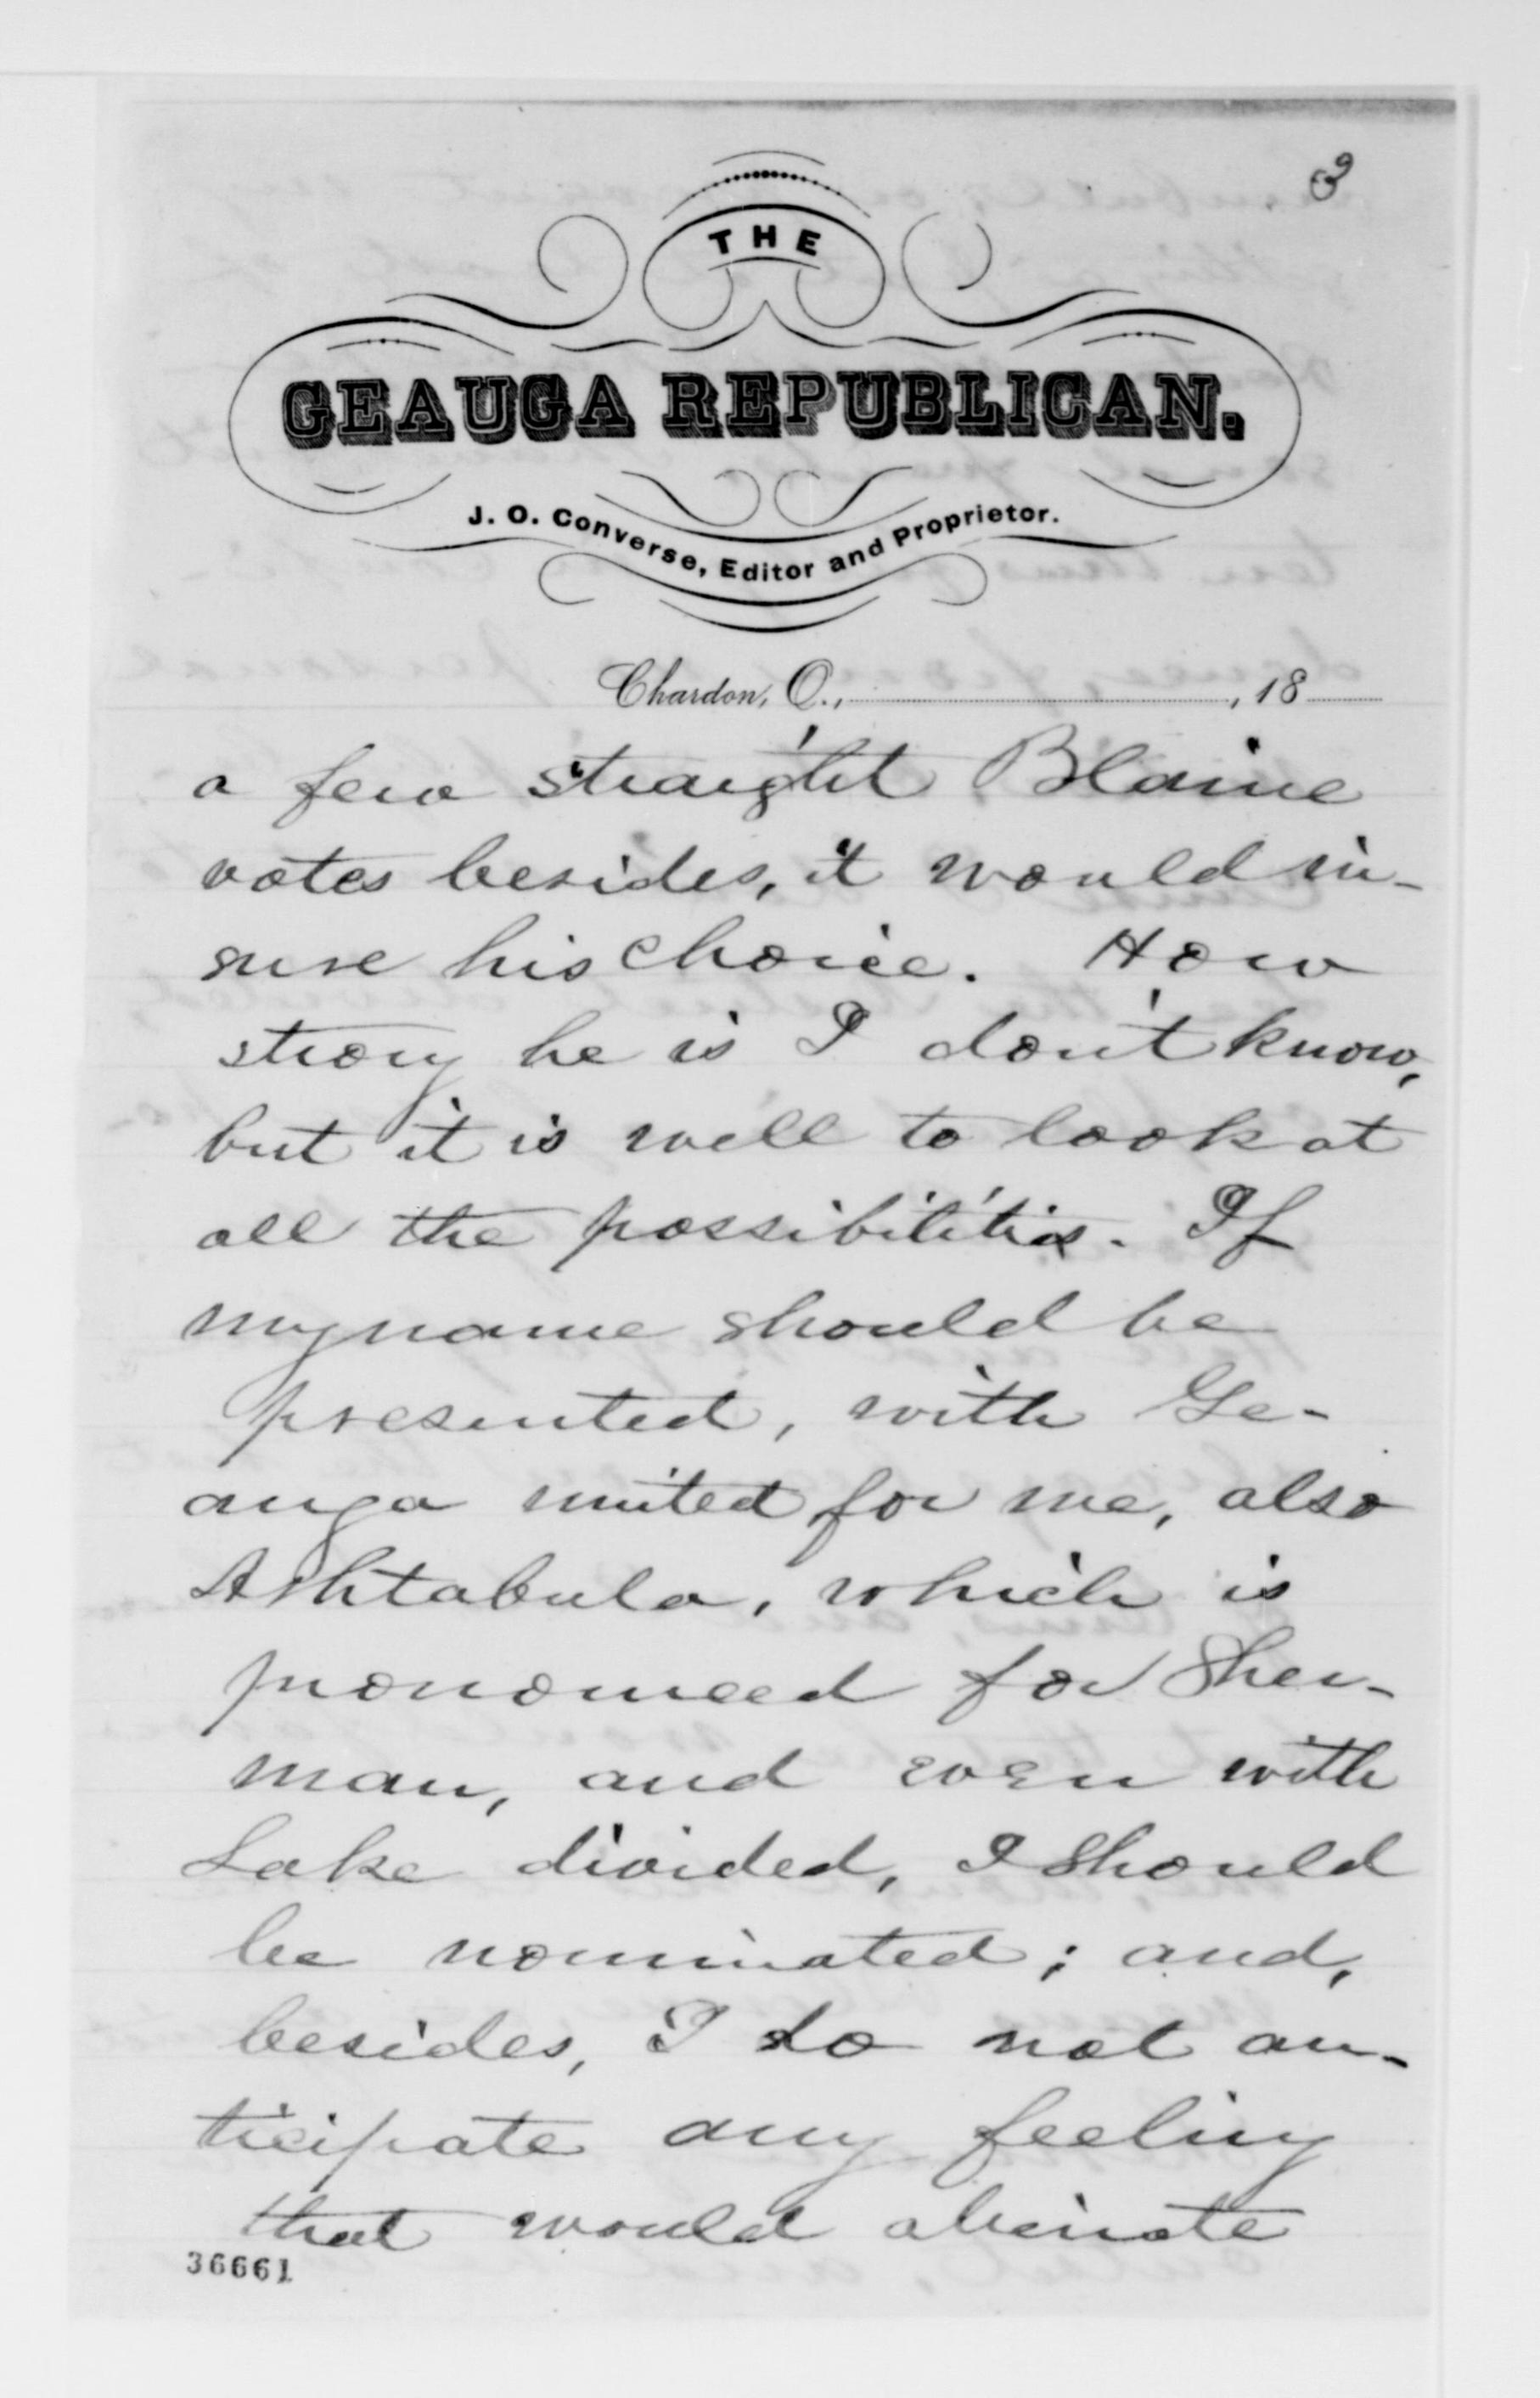 3
THE
GEAUGA REPUBLICAN.
J. O. Converse, Editor and Proprietor.
Chardon, O., , 18
a few straight Blaine
votes besides, it would in-
sure his choice. How
strong he is I don't know,
but it is well to look at
all the possibilities. If
my name should be
presented, with Ge-
auga united for me, also
Ashtabula, which is
pronounced for Sher-
man, and even with
Lake divided, I should
be nominated; and,
besides, I do not an-
ticipate any feeling
that would alienate
36661